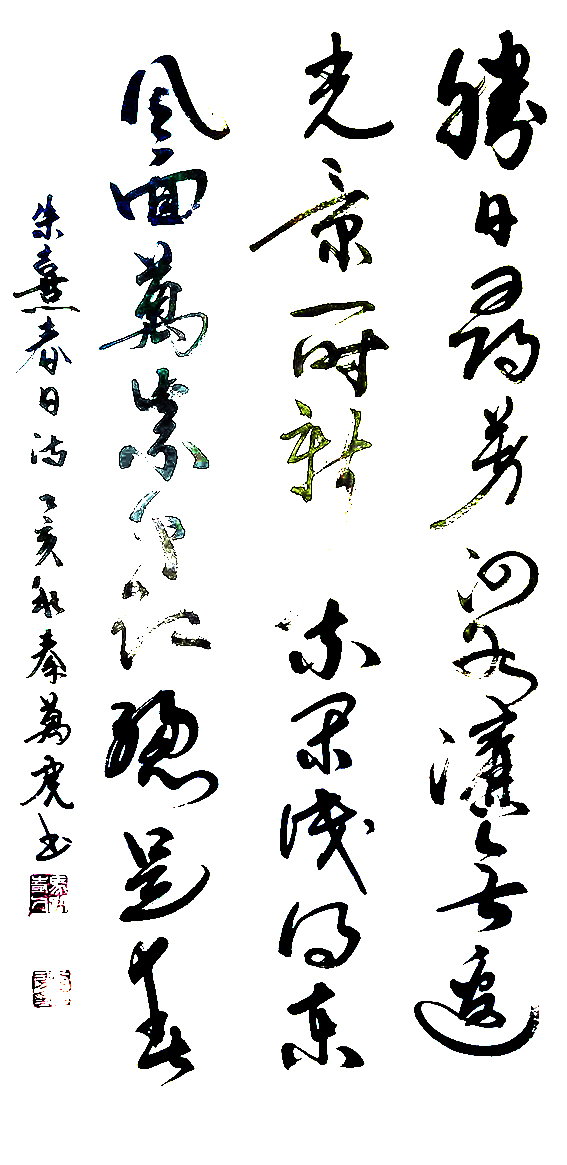 勝日尋芳泗水濱無邊
光景一時新等閒識得東
風面萬紫千紅總是春
朱熹春日詩乙亥秋秦萬虎书